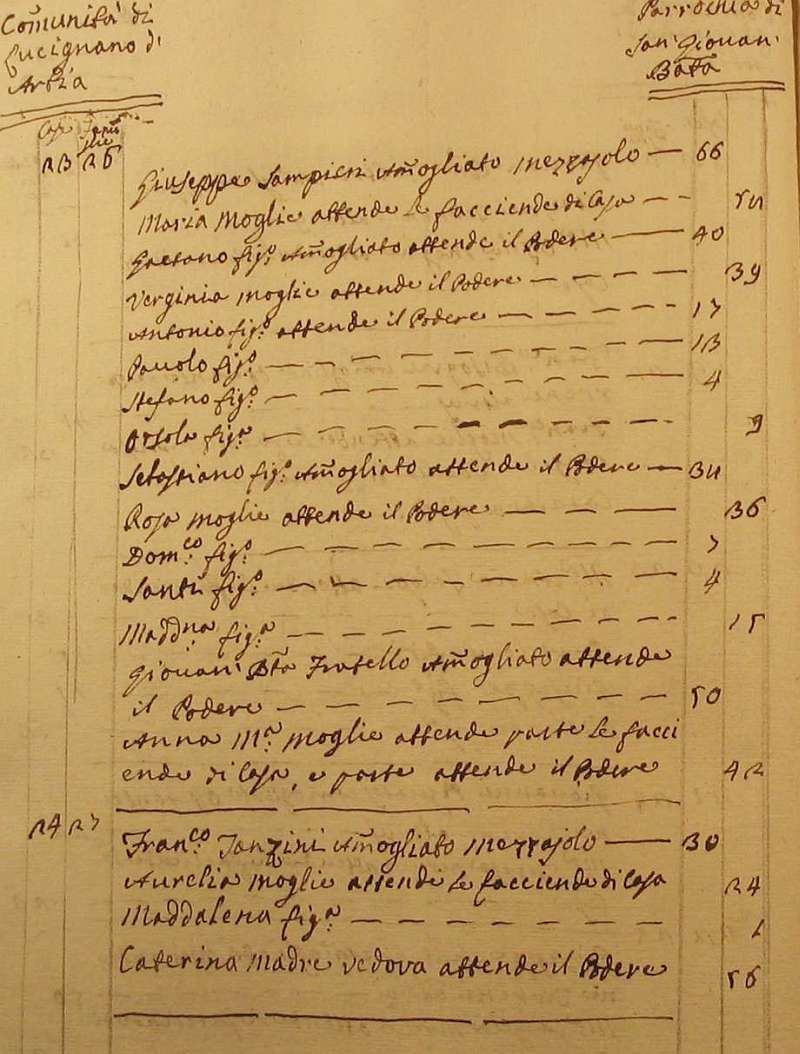 Comunità di
Lucignano d'
Arbia
Parrochia di
San Giovan
Batta
Case Fami
glie
23 26
Giuseppe Sampieri Amogliato mezzajolo — 66
Maria Moglie attende le facciende di Casa — —
Gaetano fig.o Amogliato attende il Podere — 40
Verginia moglie attende il Podere — — — — 39
Antonio fig.o attende il Podere — — — — — 17
Pauolo fig.o — — — — — — — — 13
Stefano fig.o — — — — — — — — 4
Orsola fig.a — — — — — — — — 9
Sebastiano fig.o Amogliato attende il Podere — 34
Rosa moglie attende il Podere — — — 36
Dom.co fig.o — — — — — — — — 7
Santi fig.o — — — — — — — — 4
Madd.na fig.a — — — — — — — — 15
Giovan Bta Fratello Amogliato attende
il Podere — — — — — — — — 50
Anna M.a moglie attende parte le facci
ende di Casa, e parte attende il Podere 42
24 27
Fran.co Janzini Amogliato Mezzajolo — 30
Aurelia moglie attende le facciende di Casa 24
Maddalena fig.a — — — — — — — 1
Caterina Madre vedova attende il Podere 56